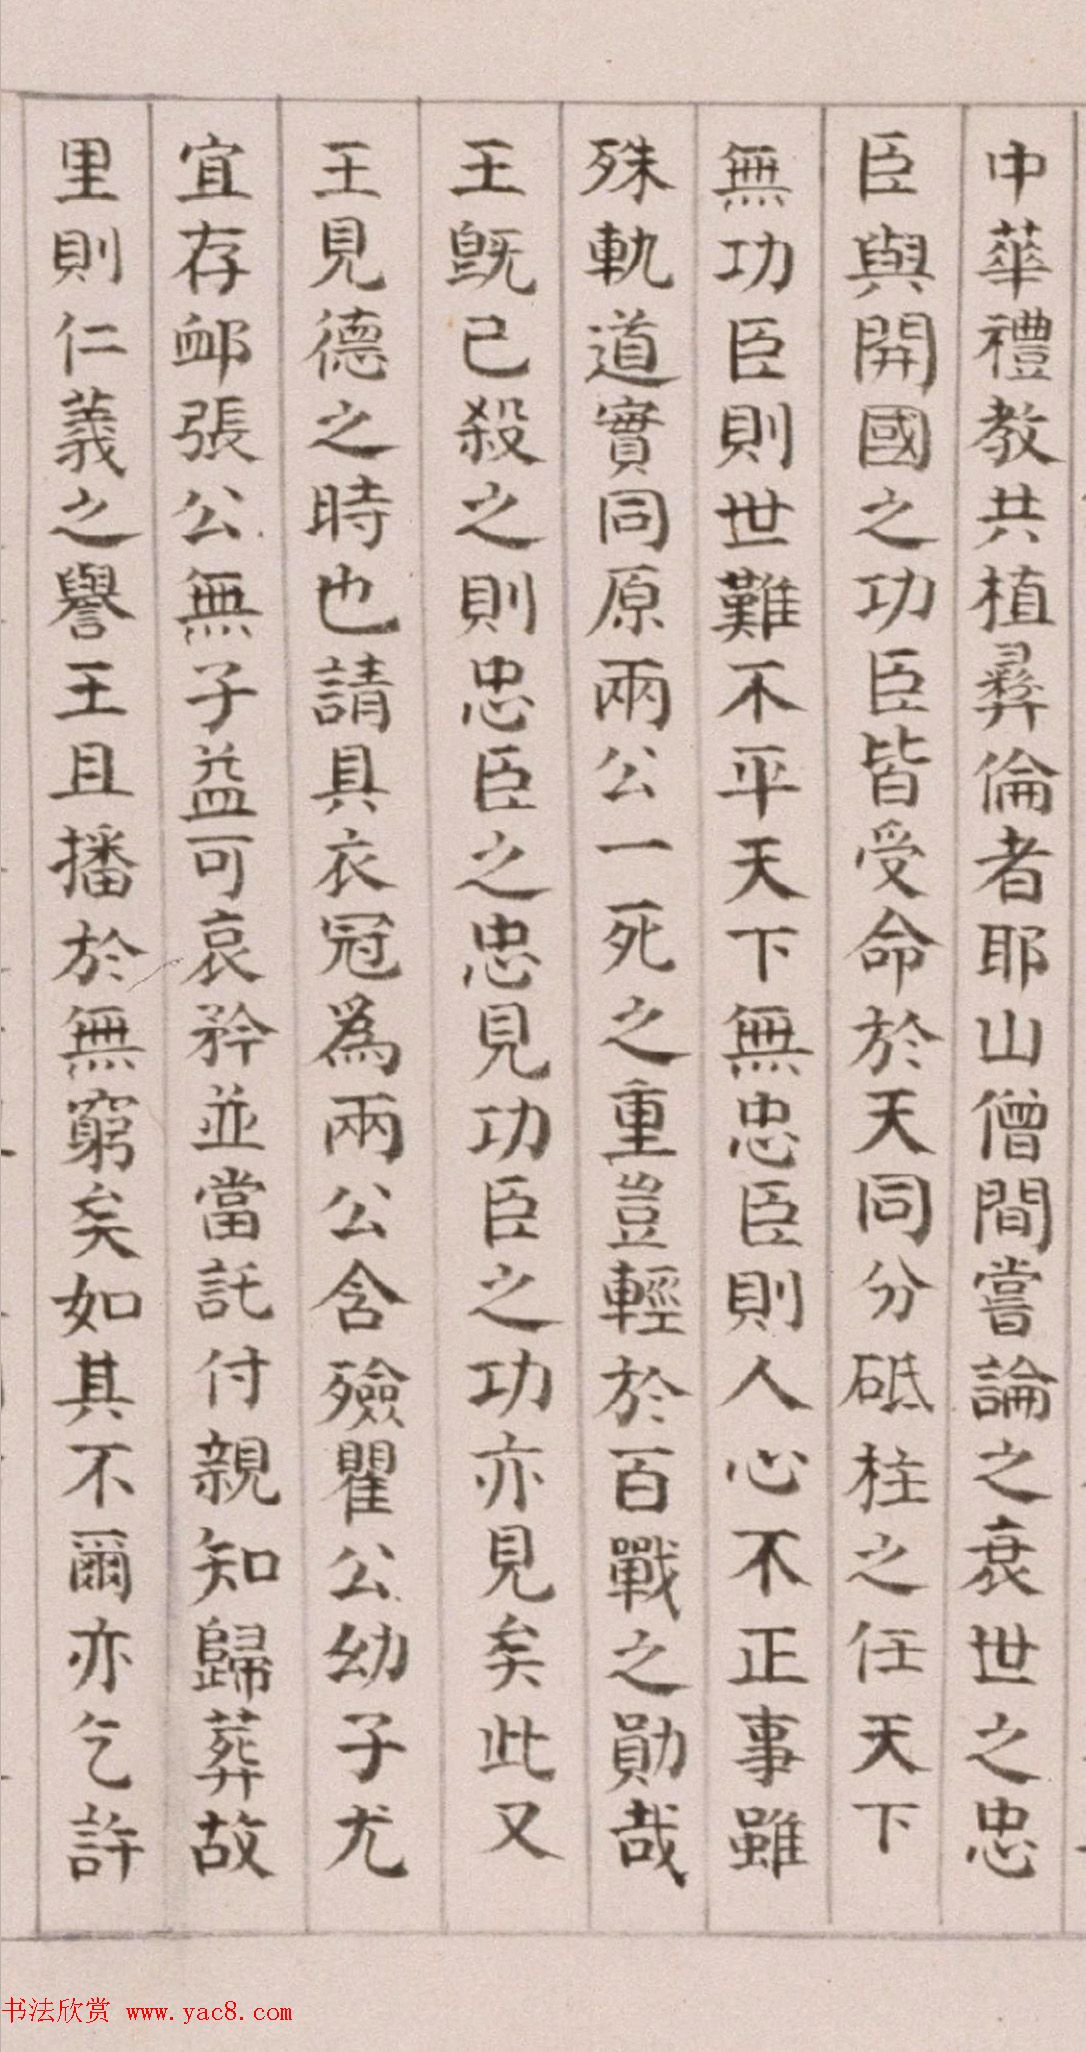 中華禮教共植彞倫者耶山僧間嘗論之衰世之忠
臣與開國之功臣皆受命於天同分砥柱之任天下
無功臣則世難不平天下無忠臣則人心不正事雖
殊軌道實同原兩公一死之重豈輕於百戰之勛哉
王旣已殺之則忠臣之忠見功臣之功亦見矣此又
王見德之時也請具衣冠爲兩公含殮瞿公幼子尤
宜存卹張公無子益可哀矜並當託付親知歸葬故
里則仁義之譽王且播於無窮矣如其不爾亦乞許
书法欣赏 www.yac8.com